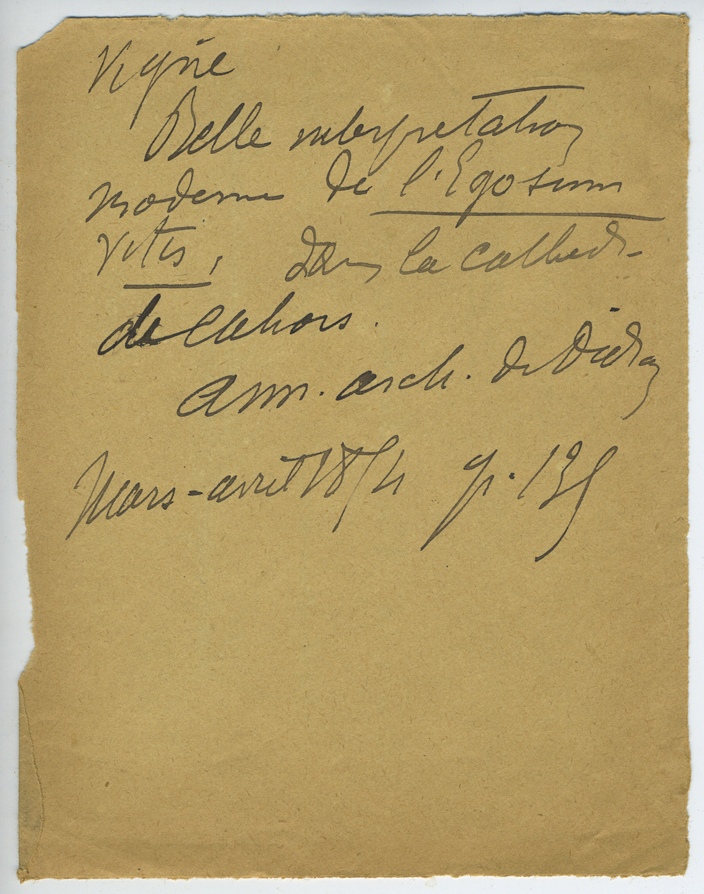 Vigne
Belle interpretation
moderne de l'Ego sum
Vitis, dans la cathed.
de Cahors.
Ann. arch. de Didron
Mars-avril p.